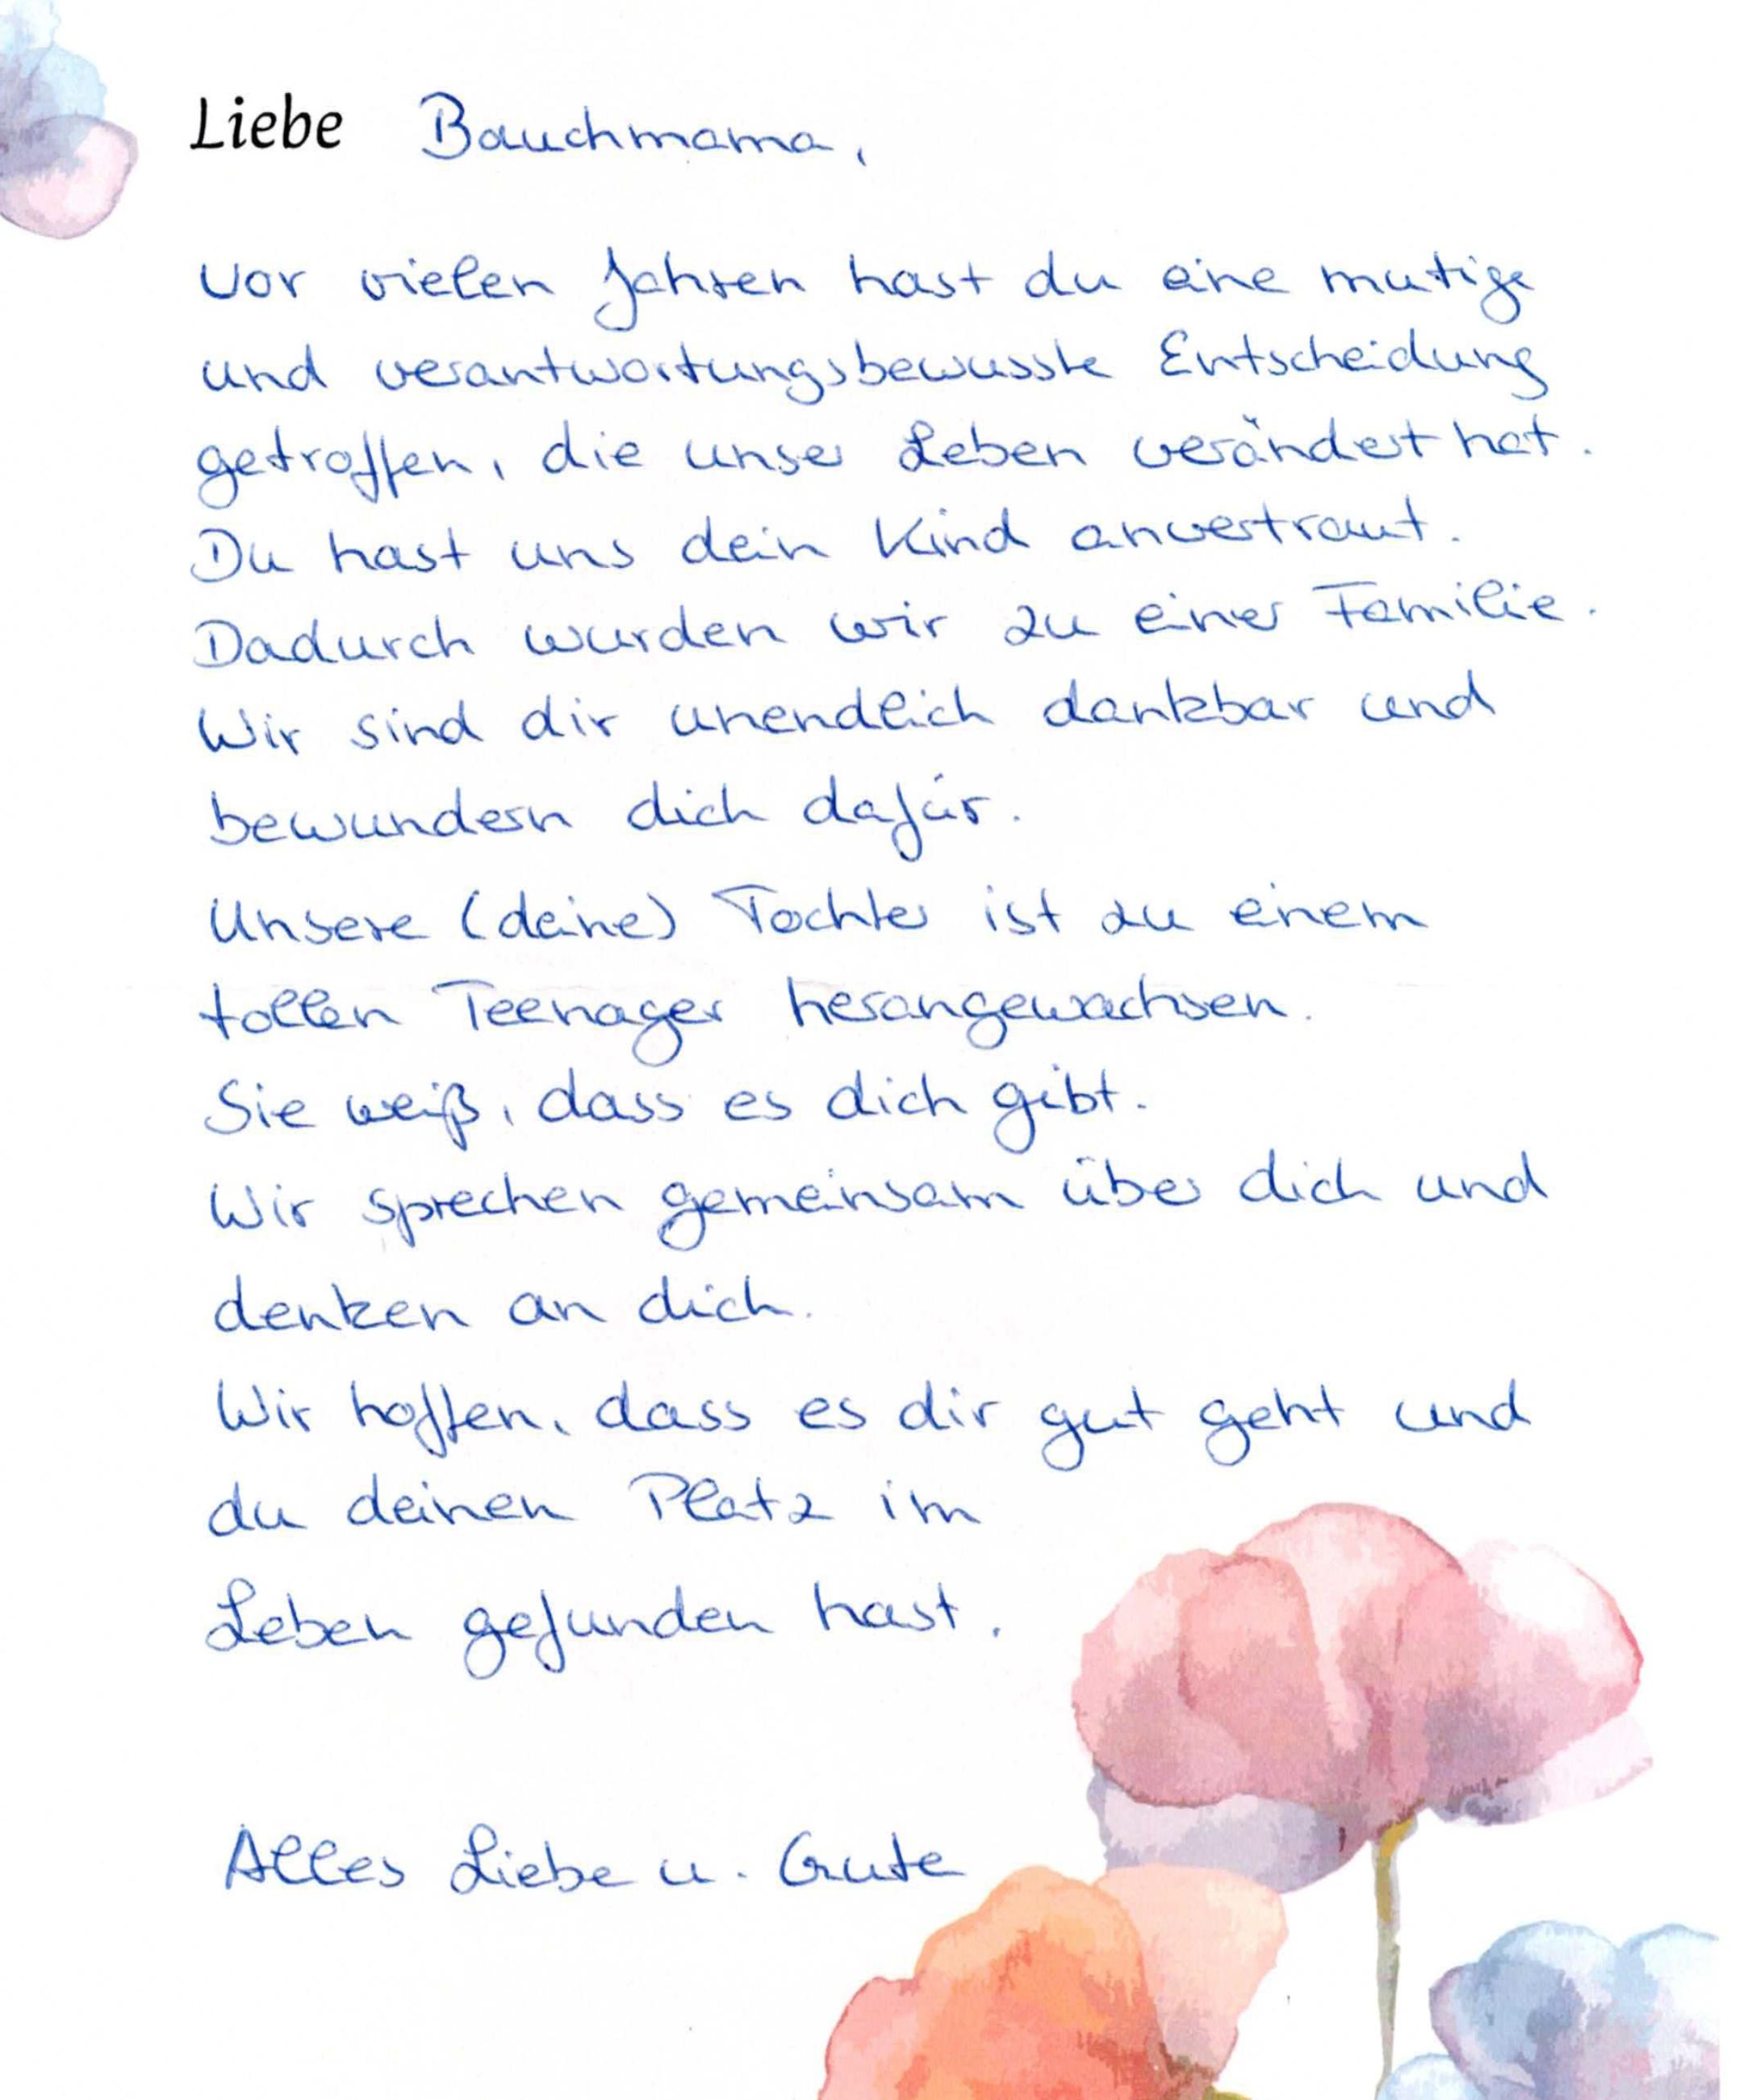 Liebe Bauchmama,
vor vielen Jahren hast du eine mutige
und verantwortungsbewusste Entscheidung
getroffen, die unser Leben verändert hat.
Du hast uns dein Kind anvertraut.
Dadurch wurden wir zu einer Familie.
Wir sind dir unendlich dankbar und
bewundern dich dafür.
Unsere (deine) Tochter ist zu einem
tollen Teenager herangewachsen.
Sie weiß, dass es dich gibt.
Wir sprechen gemeinsam über dich und
denken an dich.
Wir hoffen, dass es dir gut geht und
du deinen Platz im
Leben gefunden hast.
Alles Liebe u. Gute